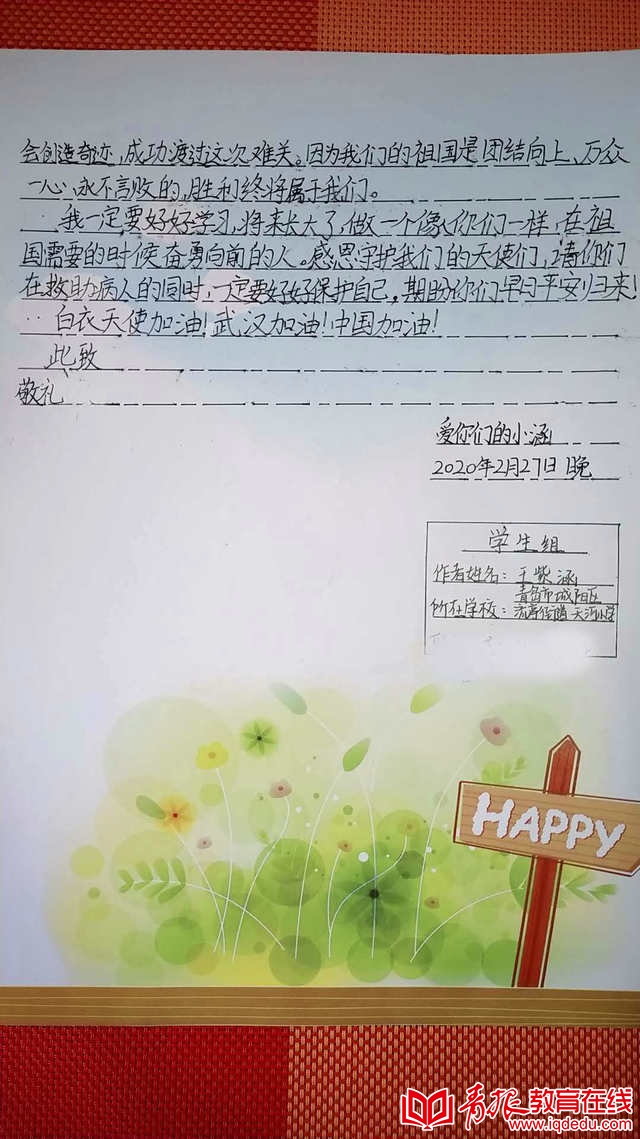 会创造奇迹,成功渡过这次难关。因为我们的祖国是团结向上、万众
一心、永不言败的,胜利终将属于我们。
我一定要好好学习,将来长大了,做一个像你们一样,在祖
国需要的时候奋勇向前的人。感恩守护我们的天使们,请你们
在救助病人的同时,一定要好好保护自己,期盼你们早日平安归来!
白衣天使加油!武汉加油!中国加油!
此致
敬礼
爱你们的小涵
2020年2月27日晚
学生组
作者姓名:王紫涵
青岛市城阳区
所在学校:流亭街道天河小学
HAPPY
青报教育在线
www.iqdedu.com